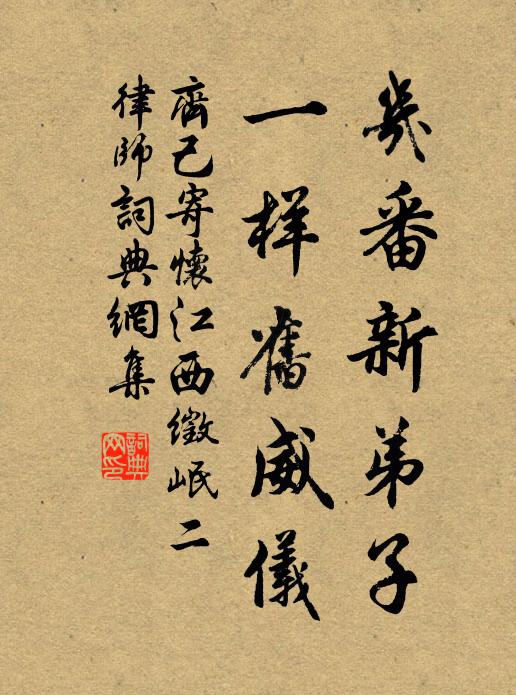 几番新弟子
一样舊威儀
齊己寄懷江西徵岷二
律師詞典網集
詞典
网印